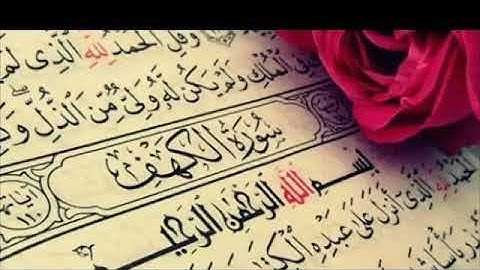 وَقُلِ الْحَمْدُ لِلَّهِ الَّذِي لَمْ
فِي الْمُلْكِ وَلَمْ يَكُن لَّهُ وَلِيٌّ مِّنَ الذُّلِّ وَكَ
سُورَةُ الْكَهْفِ
بِسْمِ اللَّهِ الرَّحْمَٰنِ الرَّحِيمِ
الْحَمْدُ لِلَّهِ الَّذِي أَنزَلَ عَلَىٰ عَبْدِهِ الْكِتَ
بَأْسًا